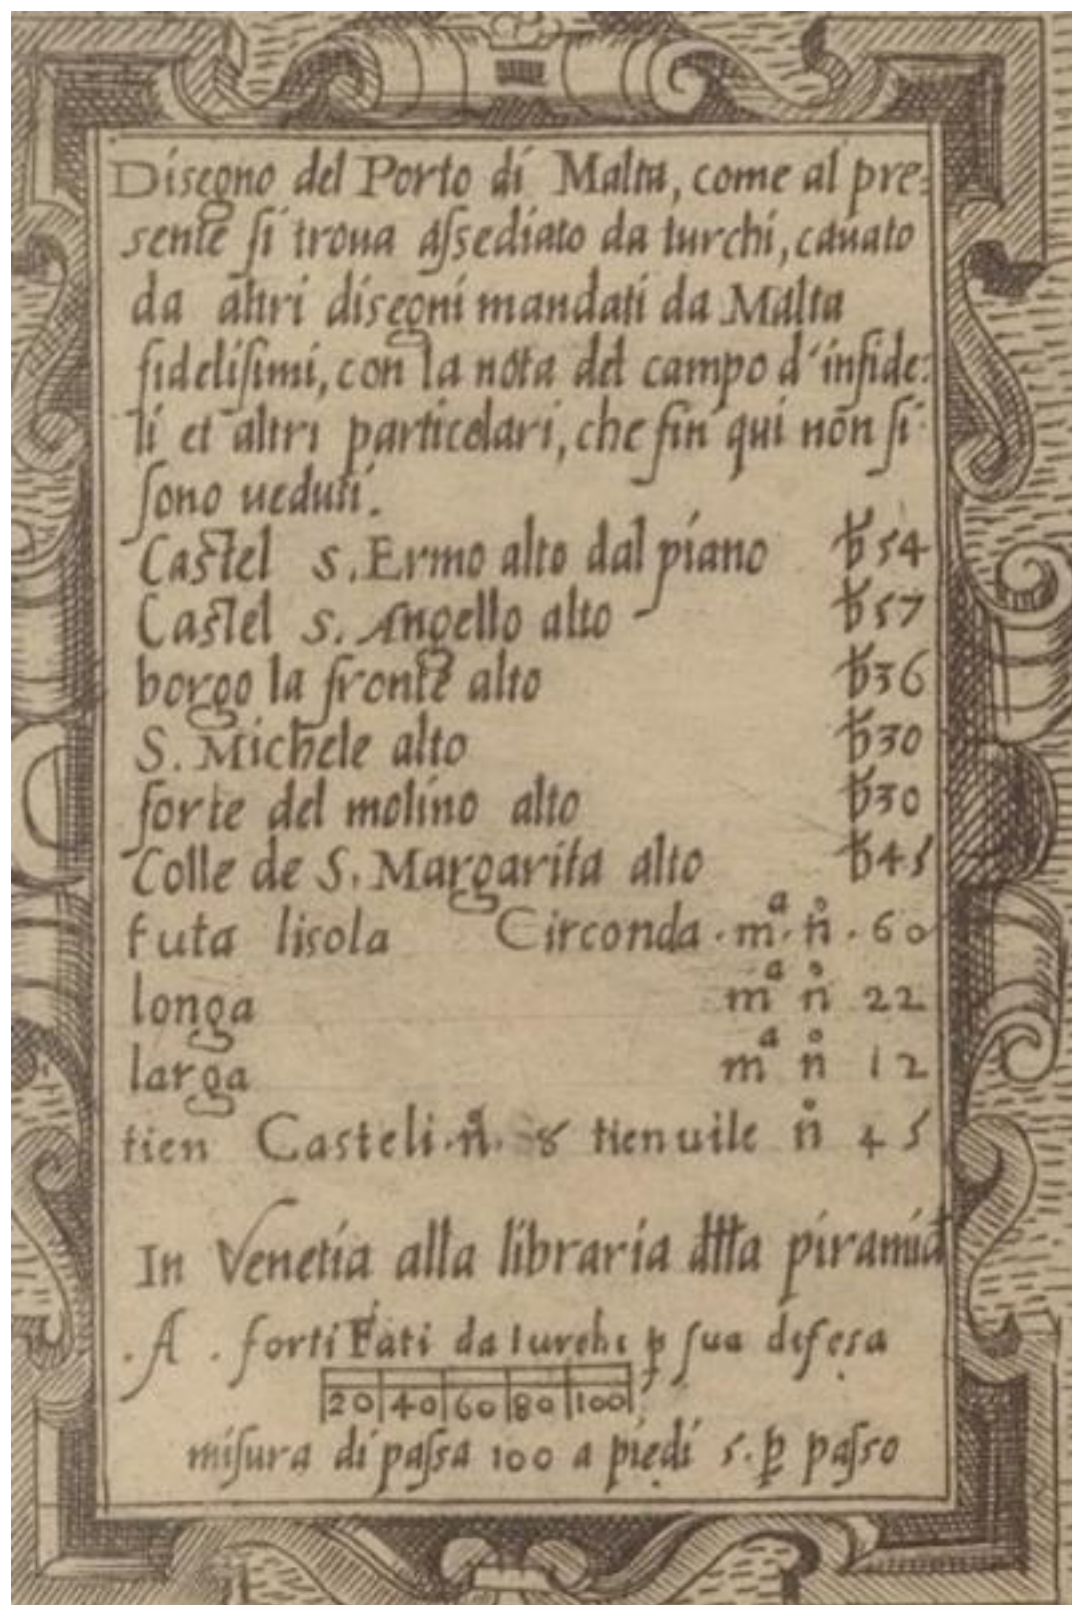 Disegno del Porto di Malta, come al pre:
sente si troua assediato da turchi, cauato
da altri disegni mandati da Malta
fidelissimi, con la nota del campo d'infide:
li et altri particolari, che fin qui non si
sono ueduti.
Castel s. Ermo alto dal piano 54
Castel s. Angello alto 57
borgo la fronte alto 36
S. Michele alto 30
forte del molino alto 30
Colle de S. Margarita alto 45
tuta lisola Circonda . mª . n̊ . 60
longa mª n̊ 22
larga mª n̊ 12
tien Casteli . n̊ . 8 tien uile n̊ 45
In Venetia alla libraria piramid
. A . forti fati da turchi p̱ sua difesa
20 40 60 80 100
misura di passa 100 a piedi 5. p̱ passo